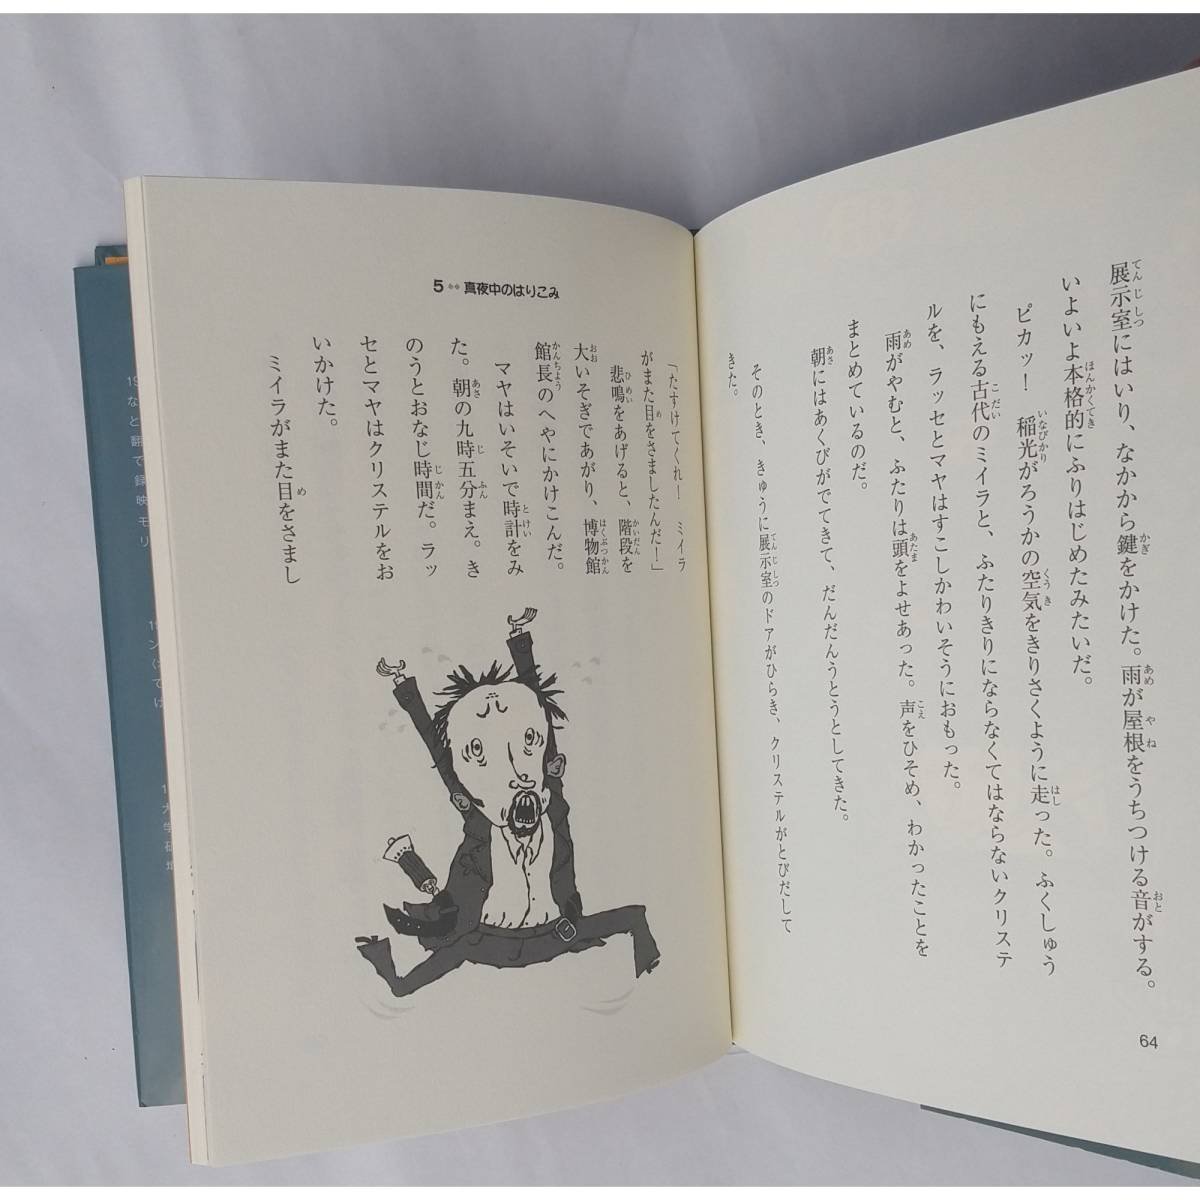 展示室にはいり、なかから鍵をかけた。雨が屋根をうちつける音がする。
いよいよ本格的にふりはじめたみたいだ。
ピカッ！　稲光がろうかの空気をきりさくように走った。ふくしゅう
にもえる古代のミイラと、ふたりきりにならなくてはならないクリステ
ルを、ラッセとマヤはすこしかわいそうにおもった。
雨がやむと、ふたりは頭をよせあった。声をひそめ、わかったことを
まとめているのだ。
朝にはあくびがでてきて、だんだんうとうとしてきた。
そのとき、きゅうに展示室のドアがひらき、クリステルがとびだして
きた。
64
5 真夜中のはりこみ
「たすけてくれ！　ミイラ
がまた目をさましたんだ！」
悲鳴をあげると、階段を
大いそぎであがり、博物館
館長のへやにかけこんだ。
マヤはいそいで時計をみ
た。朝の九時五分まえ。き
のうとおなじ時間だ。ラッ
セとマヤはクリステルをお
いかけた。
ミイラがまた目をさまし